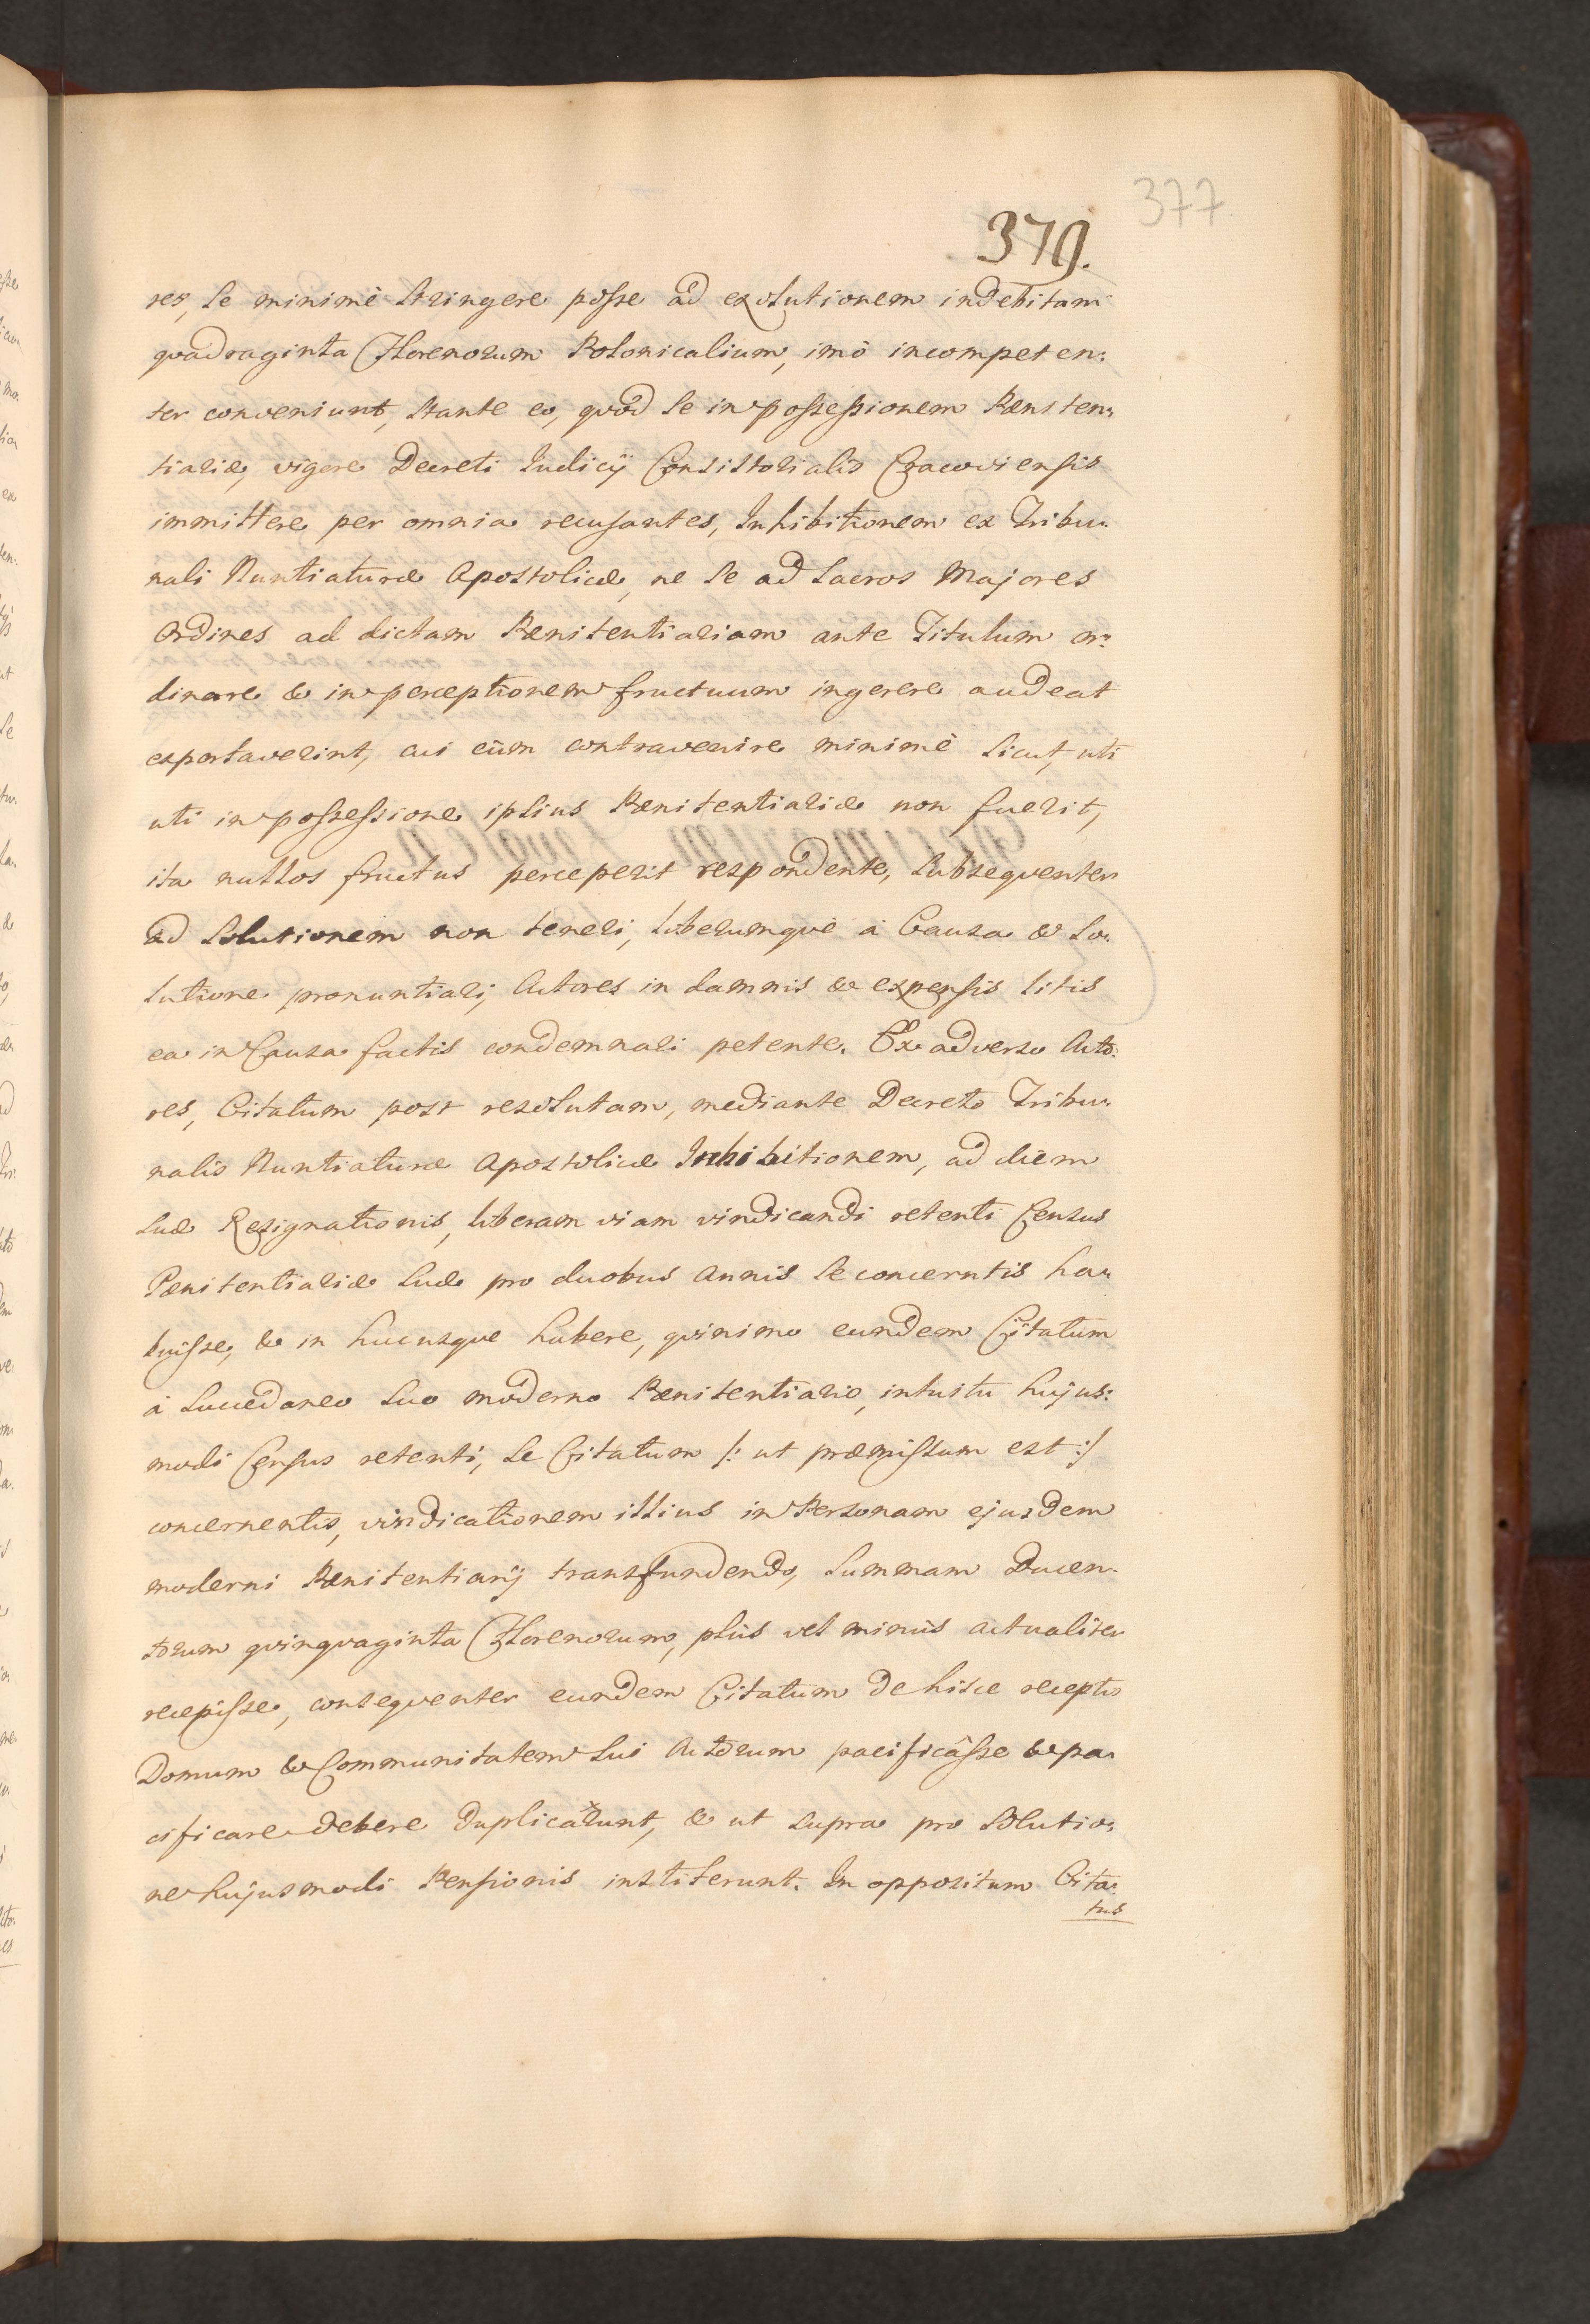 377
379.
res, se minimè stringere posse ad exolutionem indebitam
quadraginta Florenorum Polonicalium, imò incompeten:
ter conveniunt, stante eo, quòd se in possessionem Pœniten:
tiariæ, vigore Decreti Judicij Consistorialis Cracoviensis
immittere per omnia recusantes, Inhibitionem ex Tribu:
nali Nuntiaturæ Apostolicæ, ne se ad Sacros Majores
Ordines ad dictam Pœnitentiariam ante Titulum or:
dinare & in perceptionem fructuum ingerere audeat
exportaverint, cui cùm contravenire minimè licuit, uti
uti in possessione ipsius Pœnitentiariæ non fuerit,
ita nullos fructus perceperit respondente, subsequenter
ad solutionem non teneri, liberumquè à Causa & so:
lutione pronuntiari, Actores in damnis & expensis litis
ea in Causa factis condemnari petente. Ex adverso Acto:
res, Citatum post resolutam, mediante Decreto Tribu:
nalis Nuntiaturæ Apostolicæ Inhibitionem, ad diem
suæ Resignationis, liberam viam vindicandi retenti Census
Pœnitentiariæ suæ pro duobus annis se concerntis ha:
buisse, & in hucusque habere, quinimo eundem Citatum
à succedaneo suo moderno Pœnitentiario, intuitu hujus:
modi Census retenti, se Citatum /: ut præmissum est :/
concernentis, vindicationem illius in Personam ejusdem
moderni Pœnitentiarij transfundendo, summam Ducen:
torum quinquaginta Florenorum, plùs vel minùs actualiter
recepisse, consequenter eundem Citatum de hisce receptis
Domum & Communitatem sui Actorum pacificâsse & pa:
cificare debere duplicarunt, & ut supra pro solutio:
ne hujusmodi Pensionis institerunt. In oppositum Cita:
tus